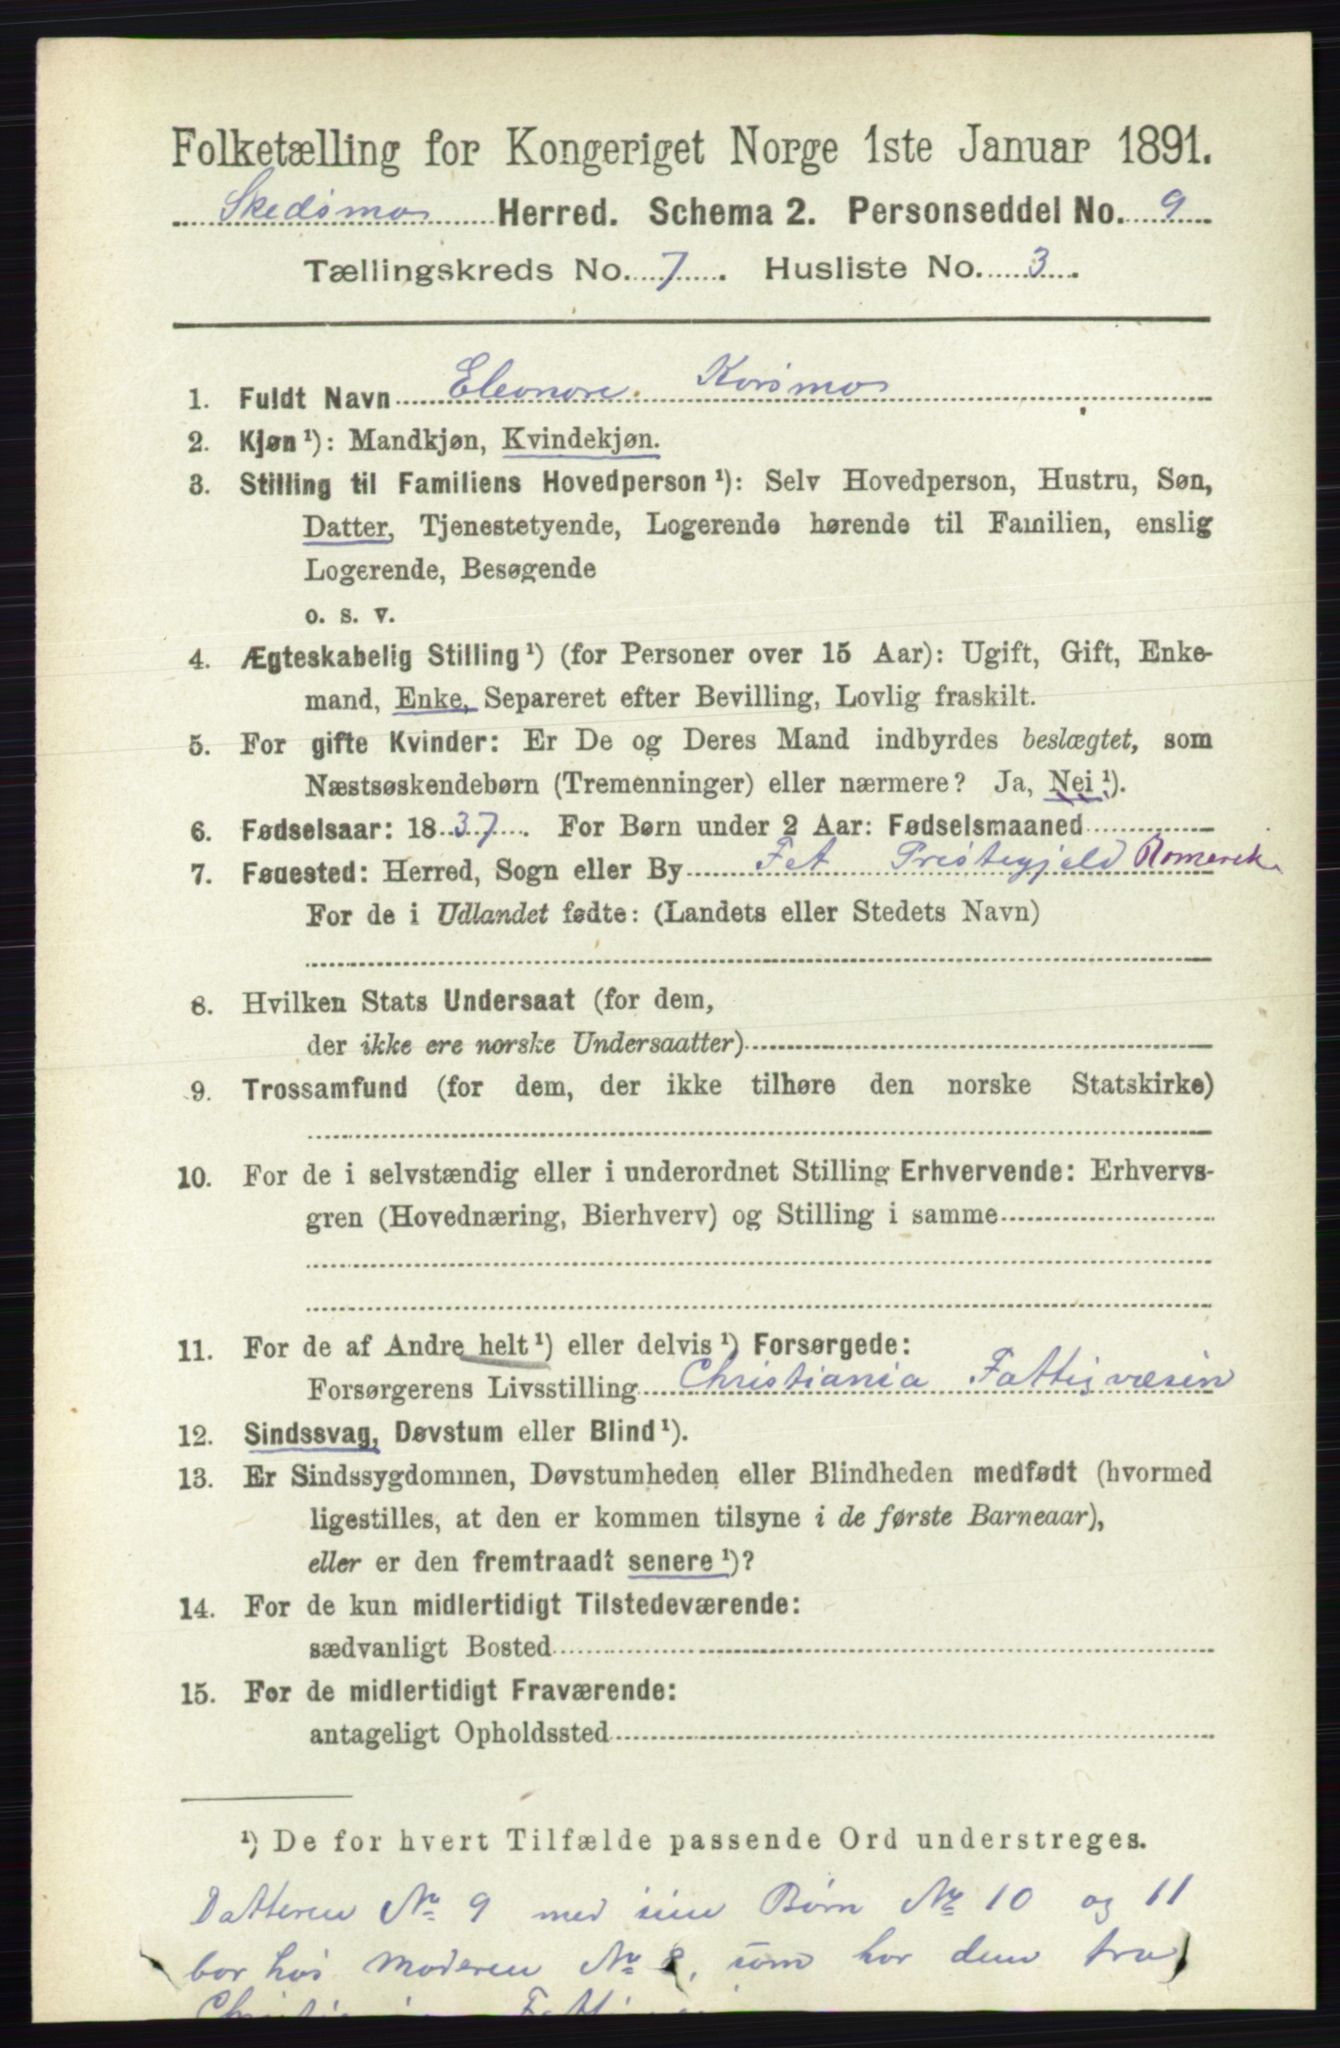 Folketælling for Kongeriget Norge 1ste Januar 1891.
Skedsmo Herred. Schema 2. Personseddel No. 9
Tællingskreds No. 7. Husliste No. 3.
1. Fuldt Navn Eleonore Korsmo
2. Kjøn ¹): Mandkjøn, Kvindekjøn.
3. Stilling til Familiens Hovedperson ¹): Selv Hovedperson, Hustru, Søn,
Datter, Tjenestetyende, Logerende hørende til Familien, enslig
Logerende, Besøgende
o. s. v.
4. Ægteskabelig Stilling ¹) (for Personer over 15 Aar): Ugift, Gift, Enke-
mand, Enke, Separeret efter Bevilling, Lovlig fraskilt.
5. For gifte Kvinder: Er De og Deres Mand indbyrdes beslægtet, som
Næstsøskendebørn (Tremenninger) eller nærmere? Ja, Nei ¹).
6. Fødselsaar: 1837. For Børn under 2 Aar: Fødselsmaaned
7. Fødested: Herred, Sogn eller By Fet Præstegjeld Romerik
For de i Udlandet fødte: (Landets eller Stedets Navn)
8. Hvilken Stats Undersaat (for dem,
der ikke ere norske Undersaatter)
9. Trossamfund (for dem, der ikke tilhøre den norske Statskirke)
10. For de i selvstændig eller i underordnet Stilling Erhvervende: Erhvervs-
gren (Hovednæring, Bierhverv) og Stilling i samme
11. For de af Andre helt ¹) eller delvis ¹) Forsørgede:
Forsørgerens Livsstilling Christiania Fattigvæsen
12. Sindssvag, Døvstum eller Blind ¹).
13. Er Sindssygdommen, Døvstumheden eller Blindheden medfødt (hvormed
ligestilles, at den er kommen tilsyne i de første Barneaar),
eller er den fremtraadt senere ¹)?
14. For de kun midlertidigt Tilstedeværende:
sædvanligt Bosted
15. For de midlertidigt Fraværende:
antageligt Opholdssted
¹) De for hvert Tilfælde passende Ord understreges.
Datteren No 9 med sine Børn No 10 og 11
bor hos Moderen No 8, som har dem fra